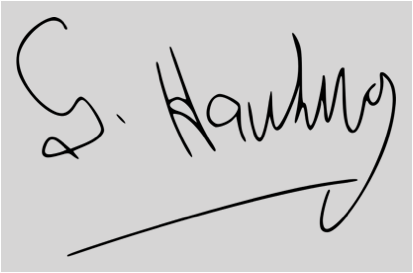 S. Hawking